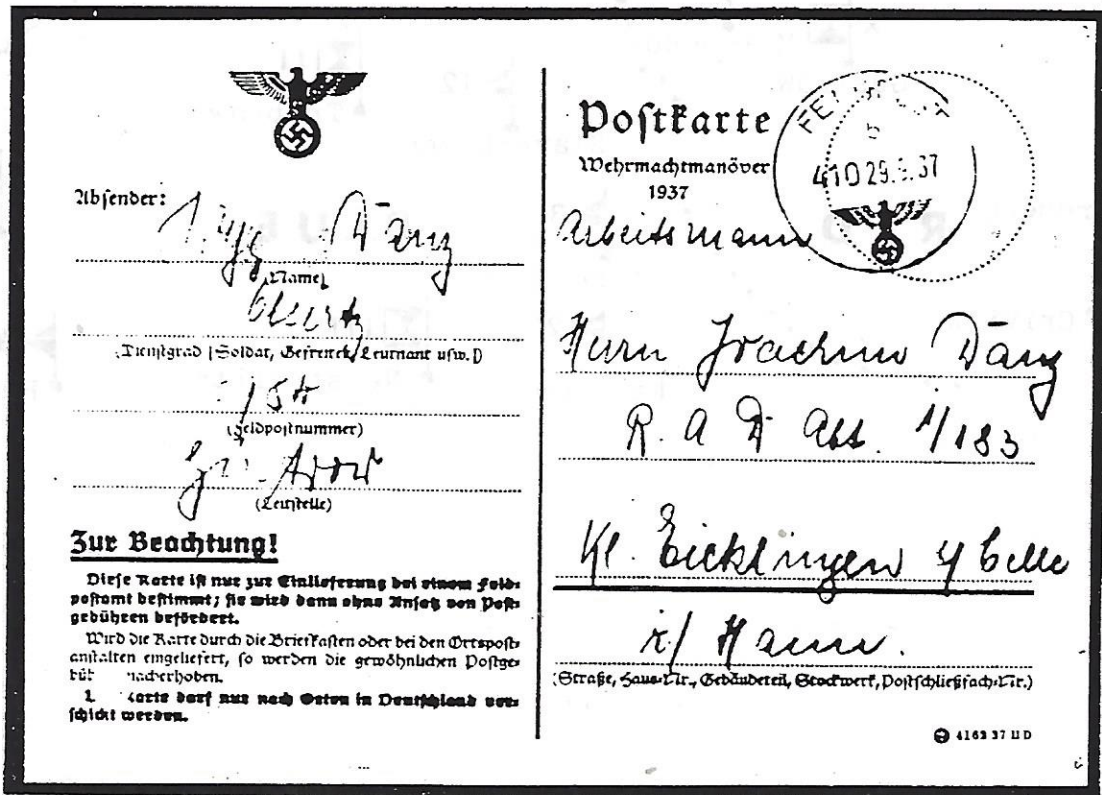 Absender:
Dänz
(Name)
(Dienstgrad [Soldat, Gefreiter, Leutnant usw.])
(Feldpostnummer)
(Leitstelle)
Zur Beachtung!
Diese Karte ist nur zur Einlieferung bei einem Feld-
postamt bestimmt; sie wird dann ohne Ansatz von Post-
gebühren befördert.
Wird die Karte durch die Briefkasten oder bei den Ortspost-
anstalten eingeliefert, so werden die gewöhnlichen Postge-
nacherhoben.
Karte darf nur nach Orten in Deutschland ver-
schickt werden.
Postkarte
Wehrmachtmanöver
1937
FELDPOST
b
410 29.9.37
Arbeitsmann
Herrn Joachim Dänz
R. A D Abt. 1/183
Kl. Eicklingen b/ Celle
i/ Hann.
(Straße, Haus-Nr., Gebäudeteil, Stockwerk, Postschließfach-Nr.)
4163 37 II D